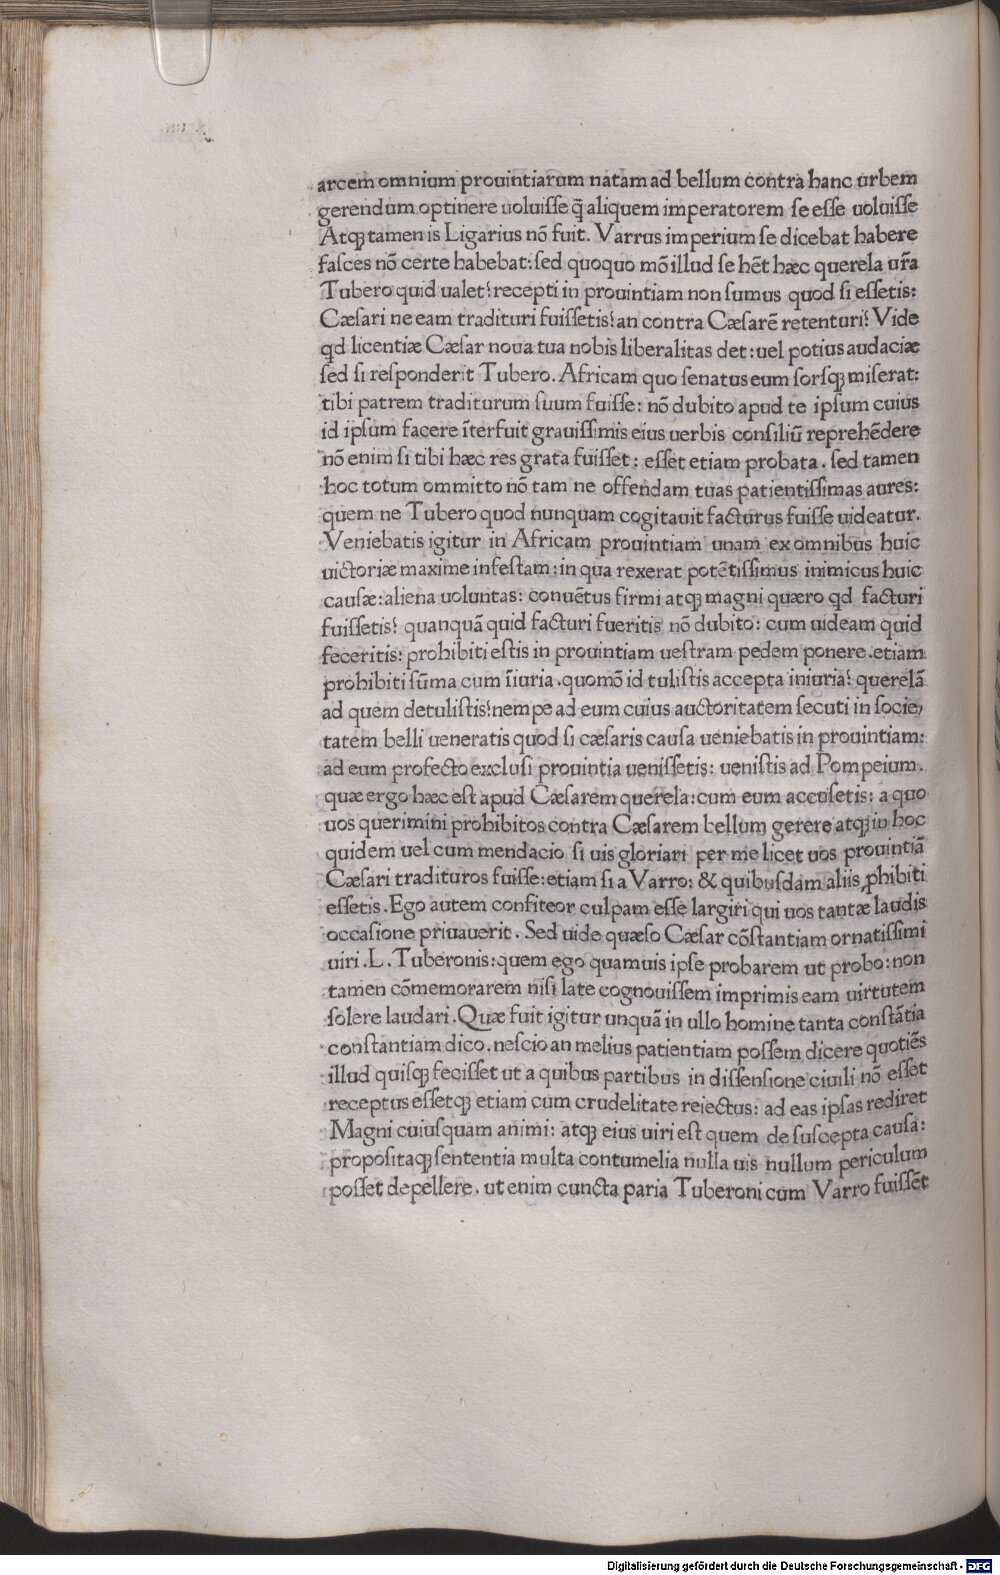 arcem omnium prouintiarum natam ad bellum contra hanc urbem
gerendum optinere uoluiſſe q̄ aliquem imperatorem ſe eſſe uoluiſſe
Atqꝫ tamen is Ligarius nō fuit. Varrus imperium ſe dicebat habere
faſces nō certe habebat: ſed quoquo mō illud ſe hēt hæc querela ur̄a
Tubero quid ualet? recepti in prouintiam non ſumus quod ſi eſſetis:
Cæſari ne eam tradituri fuiſſetis? an contra Cæſarē retenturi? Vide
qd licentiæ Cæſar noua tua nobis liberalitas det: uel potius audaciæ
ſed ſi reſponderit Tubero. Africam quo ſenatus eum ſorſqꝫ miſerat:
tibi patrem traditurum ſuum fuiſſe: nō dubito apud te ipſum cuius
id ipſum facere īterfuit grauiſſimis eius uerbis conſiliū reprehēdere
nō enim ſi tibi hæc res grata fuiſſet: eſſet etiam probata. ſed tamen
hoc totum ommitto nō tam ne offendam tuas patientiſſimas aures:
quem ne Tubero quod nunquam cogitauit facturus fuiſſe uideatur.
Veniebatis igitur in Africam prouintiam unam ex omnibus huic
uictoriæ maxime infeſtam: in qua rexerat potētiſſimus inimicus huic
cauſæ: aliena uoluntas: conuētus firmi atqꝫ magni quæro qd facturi
fuiſſetis? quanquā quid facturi fueritis nō dubito: cum uideam quid
feceritis: prohibiti eſtis in prouintiam ueſtram pedem ponere. etiam
prohibiti ſūma cum īiuria. quomō id tuliſtis accepta iniuria? querelā
ad quem detuliſtis? nempe ad eum cuius auctoritatem ſecuti in ſocie,
tatem belli ueneratis quod ſi cæſaris cauſa ueniebatis in prouintiam:
ad eum profecto excluſi prouintia ueniſſetis: ueniſtis ad Pompeium.
quæ ergo hæc eſt apud Cæſarem querela: cum eum accuſetis: a quo
uos querimini prohibitos contra Cæſarem bellum gerere atqꝫ in hoc
quidem uel cum mendacio ſi uis gloriari per me licet uos prouintiā
Cæſari tradituros fuiſſe: etiam ſi a Varro: & quibuſdam aliis ꝓhibiti
eſſetis. Ego autem confiteor culpam eſſe largiri qui uos tantæ laudis
occaſione priuauerit. Sed uide quæſo Cæſar cōſtantiam ornatiſſimi
uiri. L. Tuberonis: quem ego quamuis ipſe probarem ut probo: non
tamen cōmemorarem niſi late cognouiſſem imprimis eam uirtutem
ſolere laudari. Quæ fuit igitur unquā in ullo homine tanta conſtātia
conſtantiam dico. neſcio an melius patientiam poſſem dicere quotiēs
illud quiſqꝫ feciſſet ut a quibus partibus in diſſenſione ciuili nō eſſet
receptus eſſetqꝫ etiam cum crudelitate reiectus: ad eas ipſas rediret
Magni cuiuſquam animi: atqꝫ eius uiri eſt quem de ſuſcepta cauſa:
propoſitaqꝫ ſententia multa contumelia nulla uis nullum periculum
poſſet depellere. ut enim cuncta paria Tuberoni cum Varro fuiſſēt
Digitalisierung gefördert durch die Deutsche Forschungsgemeinschaft - DFG